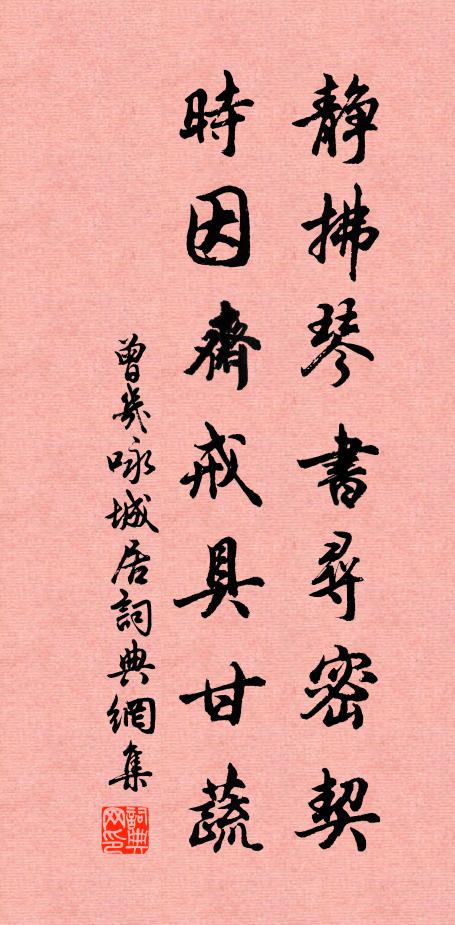 靜拂琴書尋密契
時因齋戒具甘蔬
曾幾咏城居詞典網集
詞典网印